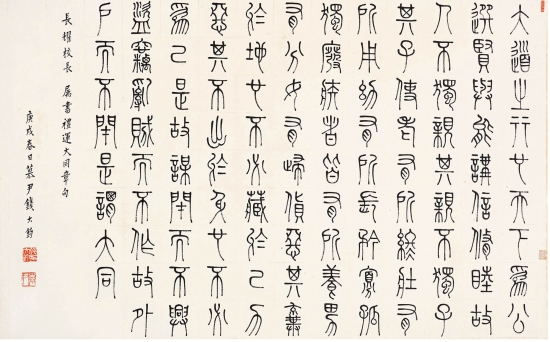 大道之行也天下為公
選賢與能講信脩睦故
人不獨親其親不獨子
其子使老有所終壯有
所用幼有所長矜寡孤
獨廢疾者皆有所養男
有分女有歸貨惡其棄
於地也不必藏於己力
惡其不出於身也不必
為己是故謀閉而不興
盜竊亂賊而不作故外
戶而不閉是謂大同
長耀校長 屬書禮運大同章句
庚戌春日慕尹錢大鈞